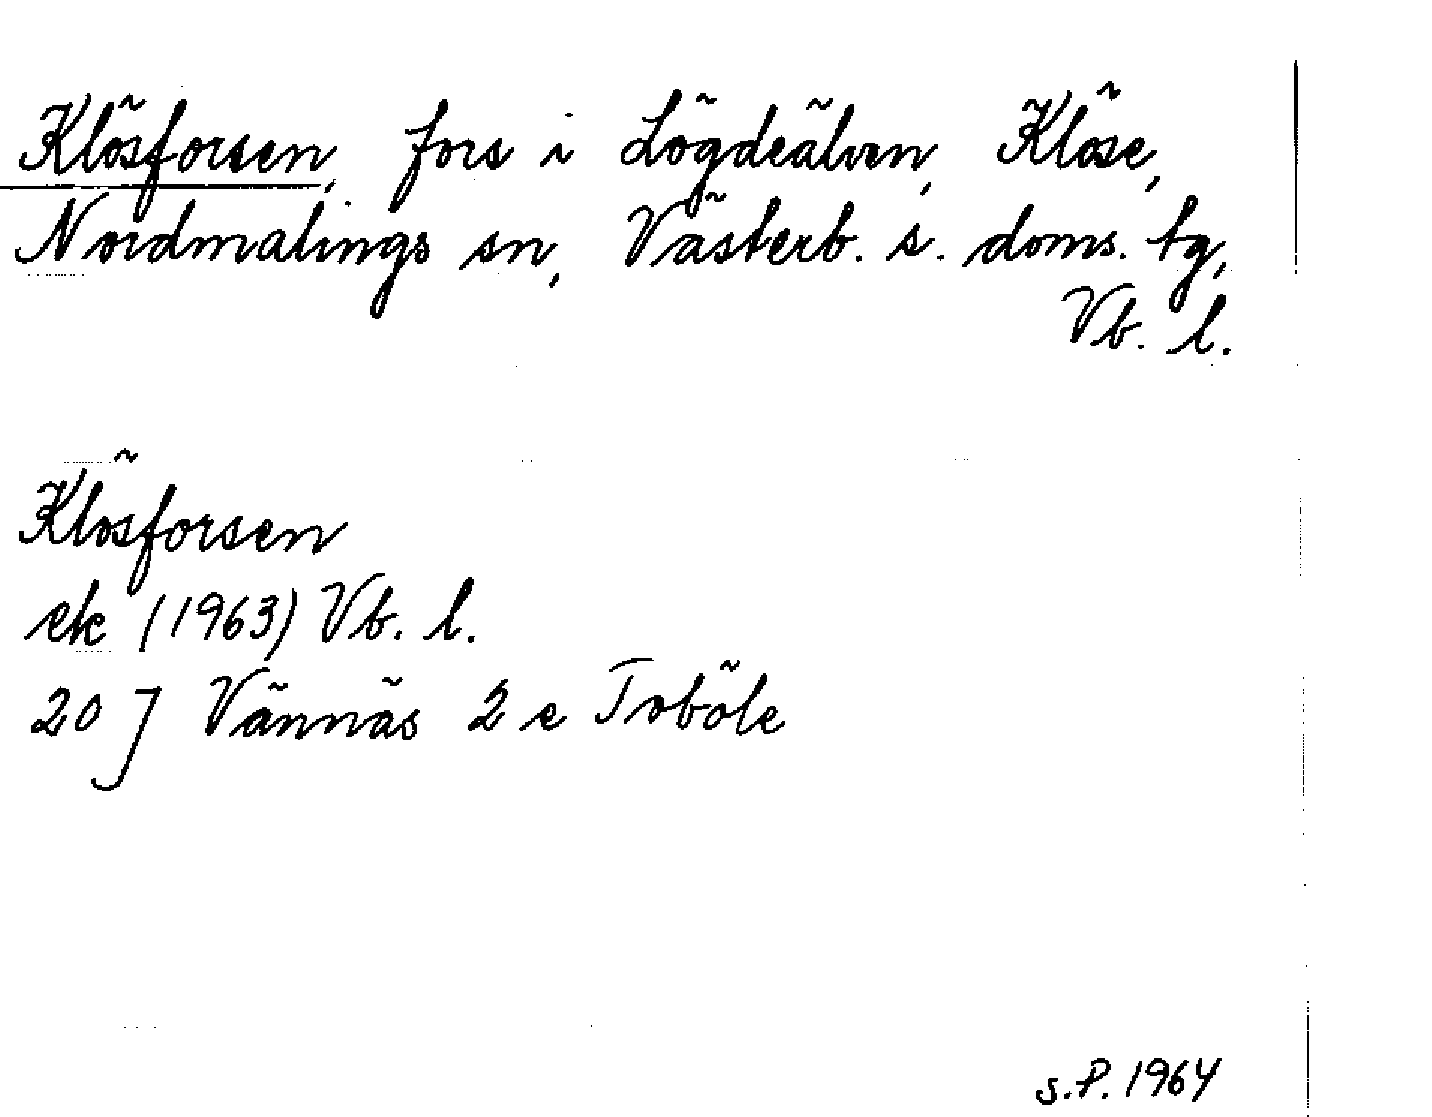 Klösforsen, fors i Lögdeälven, Klöse,
Nordmalings sn, Västerb. s. doms. tg,
Vb. l.
Klösforsen
ek (1963) Vb. l.
20 J Vännäs 2 e Toböle
S.P. 1964